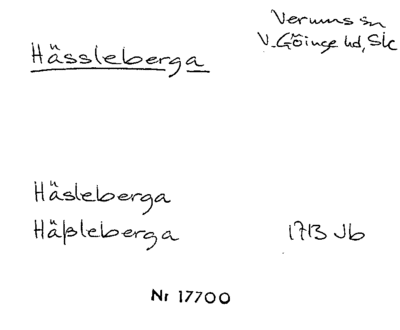 Verums sn
V. Göinge hd, Sk
Hässleberga
Häsleberga
Häßleberga 1713 Jb
Nr 17700